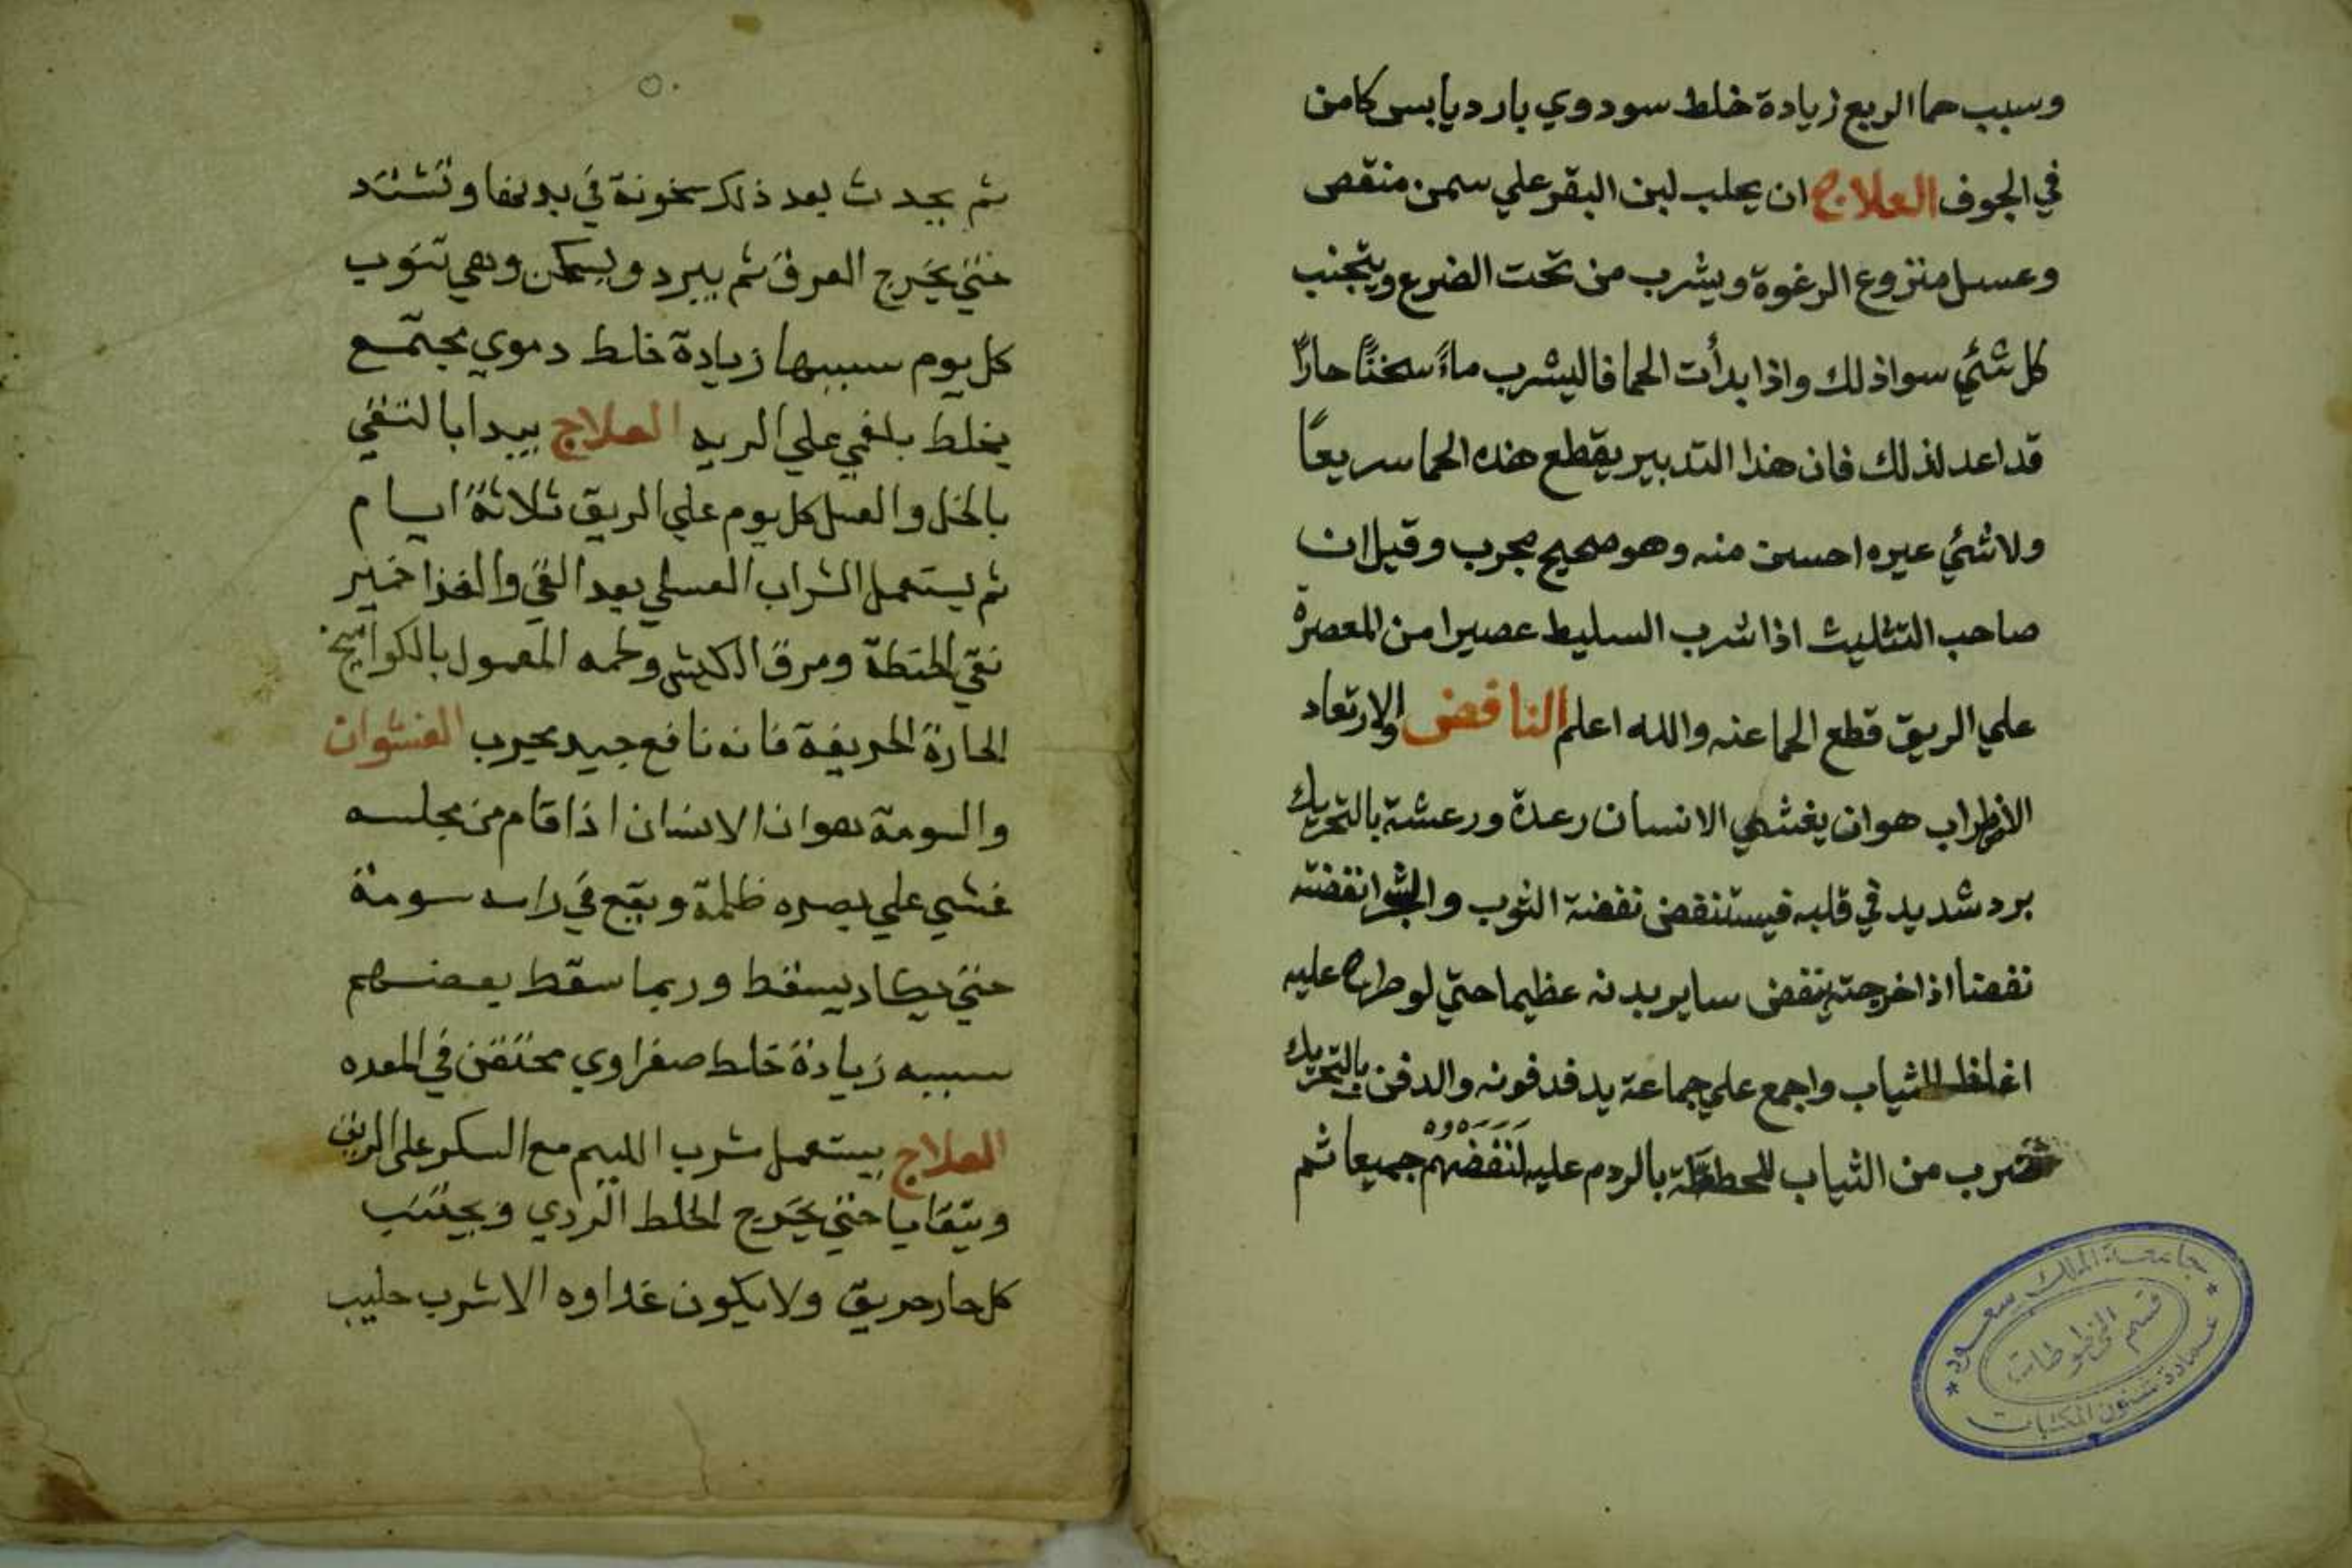 وسبب حما الربع زيادة خلط سودوي بارد يابس كامن
في الجوف العلاج ان يحلب لبن البقر علي سمن منقص
وعسل منزوع الرغوة ويشرب من تحت الضرع ويتجنب
كل شئي سواذلك واذا بدأت الحما فاليشرب ماءً سخنًا حارًا
قد اعد لذلك فان هذا التدبير يقطع هذه الحما سريعًا
ولا شئي عيره احسن منه وهو صحيح مجرب وقيل ان
صاحب التثليث اذا شرب السليط عصيرا من المعصرة
علي الريق قطع الحما عنه والله اعلم النافض والارتعاد
هو ان يغشي الانسان رعدة ورعشة بالتحريك
برد شديد في قلبه فيستنقض نفضة الثوب نفضته
نفضا اذا خرجته ينفض ساير بدنه عظيما حتي لو طراح عليه
اغلظ الثياب واجمع علي جماعة يدفدفونه والدفن بالتحريك
ضرب من الثياب بالردم عليه لنَفَضَهُم جميعا ثم
٥٠
ثم يحدث بعد ذلك سخونة في بدنها وتشتد
حتي يخرج العرق ثم يبرد ويسكن وهي تنوب
كل يوم سببها زيادة خلط دموي مجتمع
يخلط بلغمي علي الريه العلاج يبدا بالتقي
بالخل والعسل كل يوم علي الريق ثلاثة ايام
ثم يستعمل الشراب العسلي بعد القي والغذا خبر
نقي الحنطة ومرق الكبش ولحمه المعمول بالكوامخ
الحارة الحريفة فانه نافع جيد مجرب الغشوان
والسومة هو ان الانسان اذا قام من مجلسه
غشي علي بصره ظلمة ويقع في راسه سومة
حتي يكاد يسقط وربما سقط بعضهم
سببه زيادة خلط صفراوي محتقن في المعده
العلاج يستعمل شرب مع السكر علي الريق
ويتقايا حتي يخرج الخلط الردي ويجتنب
كل حار حريق ولا يكون غداوه الا شرب حليب
جامعة الملك سعود
قسم المخطوطات
عمادة شئون المكتبات